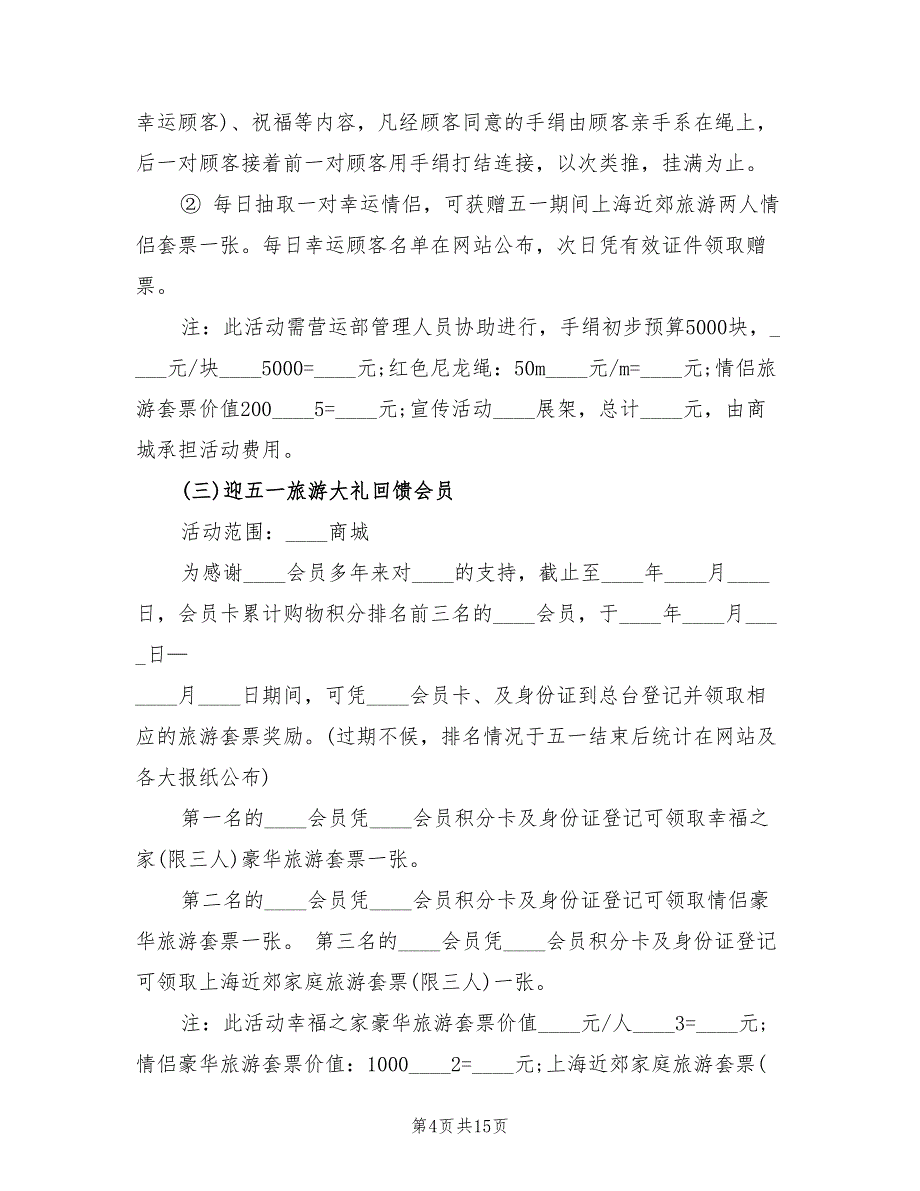 幸运顾客)、祝福等内容，凡经顾客同意的手绢由顾客亲手系在绳上，
后一对顾客接着前一对顾客用手绢打结连接，以次类推，挂满为止。
② 每日抽取一对幸运情侣，可获赠五一期间上海近郊旅游两人情
侣套票一张。每日幸运顾客名单在网站公布，次日凭有效证件领取赠
票。
注：此活动需营运部管理人员协助进行，手绢初步预算5000块，_
___元/块____5000=____元;红色尼龙绳：50m____元/m=____元;情侣旅
游套票价值200____5=____元;宣传活动____展架，总计____元，由商
城承担活动费用。
(三)迎五一旅游大礼回馈会员
活动范围：____商城
为感谢____会员多年来对____的支持，截止至____年____月____
日，会员卡累计购物积分排名前三名的____会员，于____年____月___
_日—
____月____日期间，可凭____会员卡、及身份证到总台登记并领取相
应的旅游套票奖励。(过期不候，排名情况于五一结束后统计在网站及
各大报纸公布)
第一名的____会员凭____会员积分卡及身份证登记可领取幸福之
家(限三人)豪华旅游套票一张。
第二名的____会员凭____会员积分卡及身份证登记可领取情侣豪
华旅游套票一张。 第三名的____会员凭____会员积分卡及身份证登记
可领取上海近郊家庭旅游套票(限三人)一张。
注：此活动幸福之家豪华旅游套票价值____元/人____3=____元;
情侣豪华旅游套票价值：1000____2=____元;上海近郊家庭旅游套票(
第4页共15页